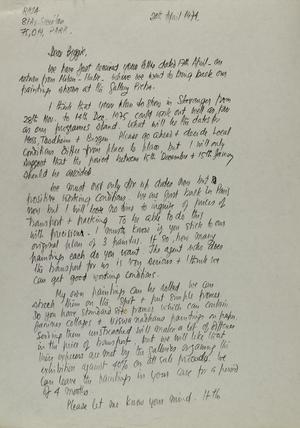 RAZA
81 Av.
75,014, PARIS
20th April 1974
Dear Biggie,
We have just received your letter dated 13th April - on
return from Milan - Italy. Where we went to bring back our
paintings shown at the Gallery
I think that your plan to show in Stavanger from
28th Nov. to 14th Dec. 1975 could work out well as far
as our programmes stand. What will be the dates for
Moss, Trondheim & Bergen. Please go ahead & decide. Local
Conditions differ from place to place but I will only
suggest that the period between 15th December & 15th January
should be avoided
We must not only fix up dates now but
positive working conditions. We are just back in Paris
now but I will leave no time to inquire of prices of
transport & packing. To be able to do this
with precisions - I must know if you stick to our
original plan of 3 painters. If so, how many
paintings each do you want. The agent who does
the transport for us is very serious & I think we
can get good working conditions.
My own paintings can be rolled. We can
stretch them on the spot & put simple frames.
So you have standard size frames which can contain
collages & paintings on paper
Sending them unstretched will make a lot of difference
in the price of transport. but we will like that
these expenses are met by the galleries organising the
exhibition against 40% on all sale proceeds. We
can leave the paintings in your care for a period
of 4 months
Please let me know your mind. If the